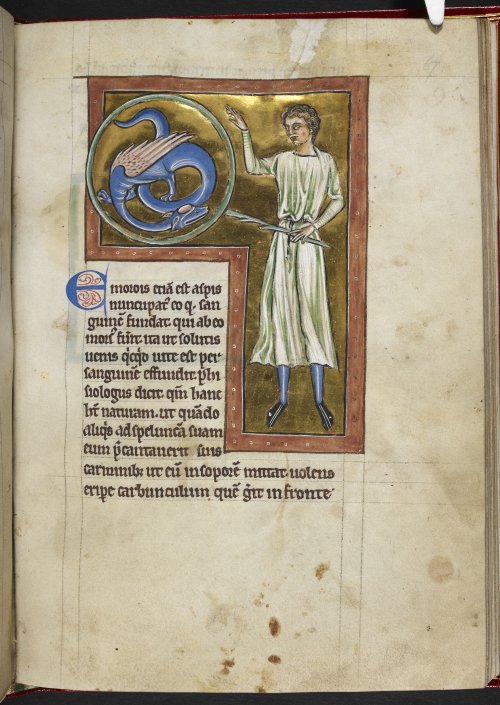 Emorois etiā est aspis
nuncupat᷒ eo q̄ san
guinē fundat. qui ab eo
mors᷒ fūit ita ut solutis
uenis q̄cq̄d uite est per
sanguinē effundit. phi
siologus dicit. qm̄ hanc
ht̄ naturam. ut quādo
aliq̄s ad speluncā suam
eum p̄cantauerit suis
carminib; ut eū in soporē mittat. uolens
eripe carbunculum quē ḡit in fronte